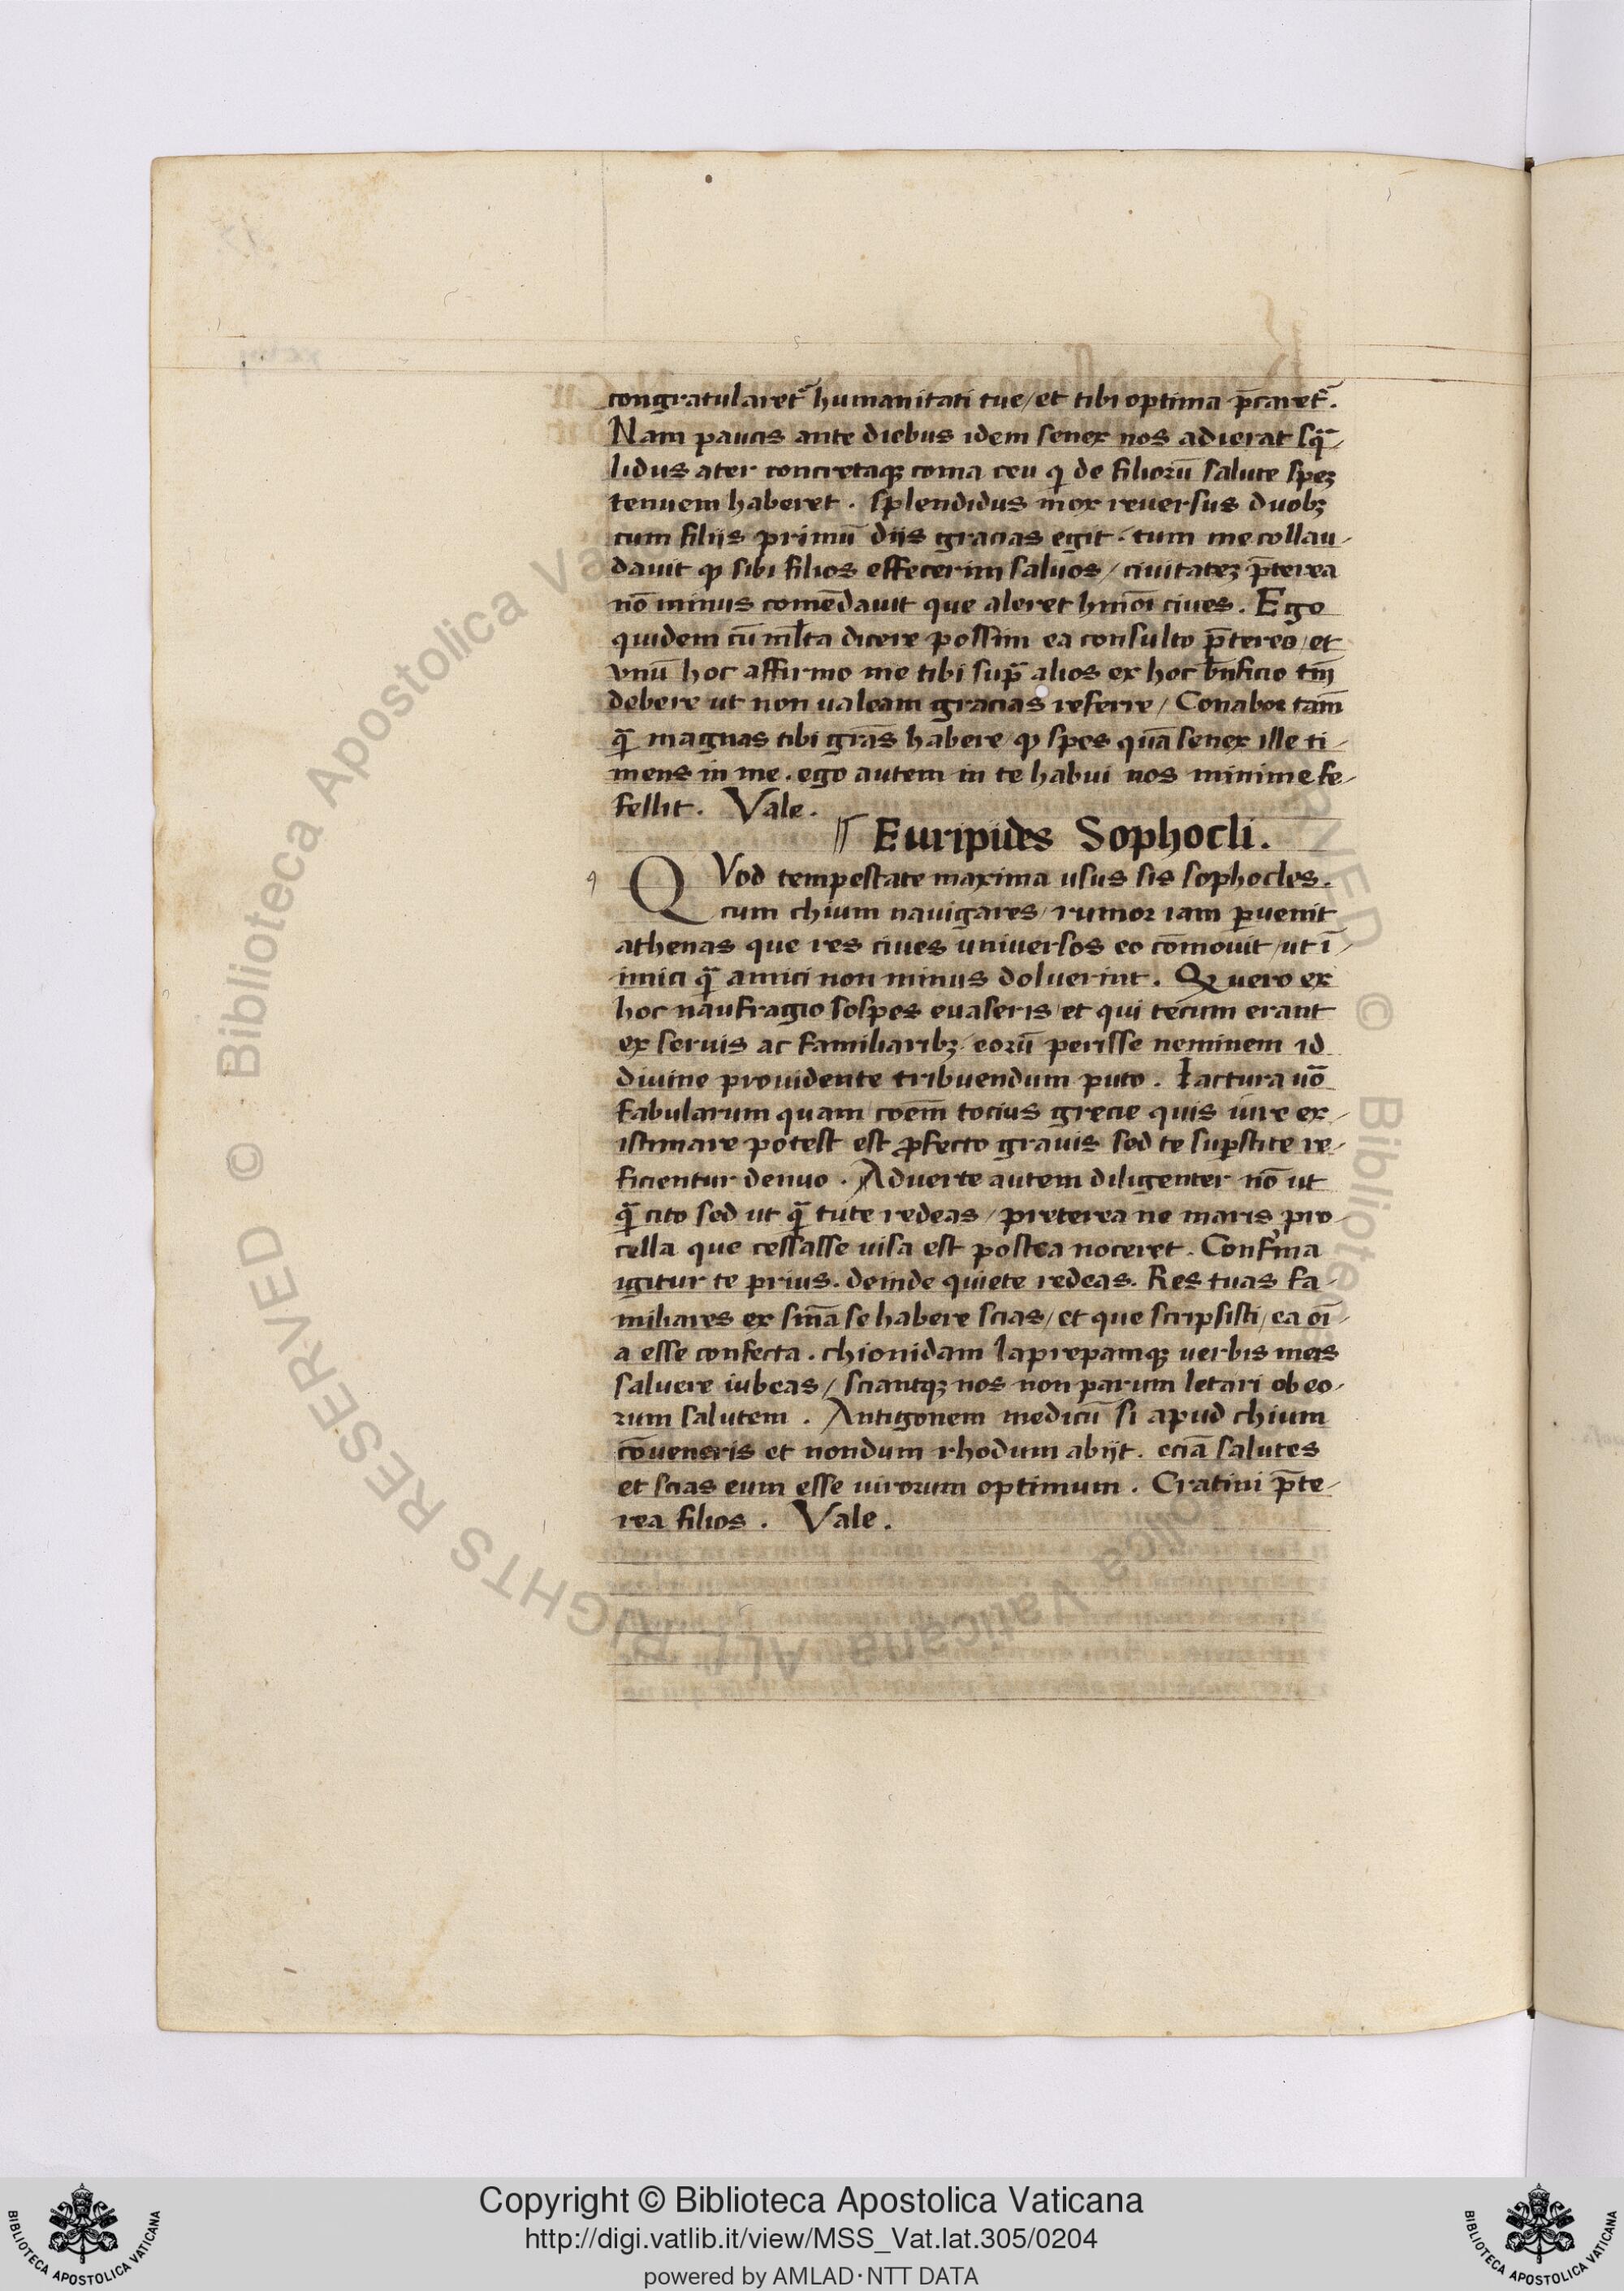 congratularet᷑ humanitati tue / et tibi optima p̄caret᷑.
Nam paucis ante diebus idem senex nos adierat sq̄-
lidus ater concretaqꝫ coma ceu qͥ de filiorū salute speꝫ
tenuem haberet . splendidus mox reuersus duobꝫ
cum filijs primū dijs gracias egit . tum me collau-
dauit ꝙ sibi filios effecerim saluos / ciuitateꝫ p̄terea
nō minus comēdauit que aleret hmōi ciues . Ego
quidem cū ml̄ta dicere possim ea consulto p̄tereo / et
vnū hoc affirmo me tibi sup̄ alios ex hoc bn̄ficio tm̄
debere ut non ualeam gracias referre / Conabor tam̄
q̄ magnas tibi grās habere / ꝙ spes quā senex ille ti-
mens in me . ego autem in te habui nos minime fe-
fellit . Vale .
¶ Euripides Sophocli .
QVod tempestate maxima usus sis sophocles .
cum chium nauigares / rumor iam ꝑuenit
athenas que res ciues uniuersos eo cōmouit / ut ī-
imici q̄ amici non minus doluerint . Qꝫ uero ex
hoc naufragio sospes euaseris / et qui tecum erant
ex seruis ac familiaribꝫ eorū perisse neminem id
diuine prouidente tribuendum puto . Iactura uō
fabularum quam cōem̄ tocius grecie quis iure ex-
istimare potest est ꝓfecto grauis sed te suꝑstite re-
ficientur denuo . Aduerte autem diligenter nō ut
q̄ cito sed ut q̄ tute redeas / preterea ne maris pro-
cella que cessasse uisa est postea noceret . Confͥma
igitur te prius . deinde quiete redeas . Res tuas fa-
miliares ex sn̄ia se habere scias / et que scripsisti / ea oī-
a esse confecta . chionidam laprepamqꝫ uerbis meis
saluere iubeas / sciantqꝫ nos non parum letari ob eo-
rum salutem . Antigonem medicū si apud chium
cōueneris et nondum rhodum abijt . eciā salutes
et scias eum esse uirorum optimum . Cratini p̄te-
rea filios . Vale .
© Biblioteca Apostolica Vaticana ALL RIGHTS RESERVED
© Biblioteca
Copyright © Biblioteca Apostolica Vaticana
http://digi.vatlib.it/view/MSS_Vat.lat.305/0204
powered by AMLAD·NTT DATA
BIBLIOTECA APOSTOLICA VATICANA
BIBLIOTECA APOSTOLICA VATICANA